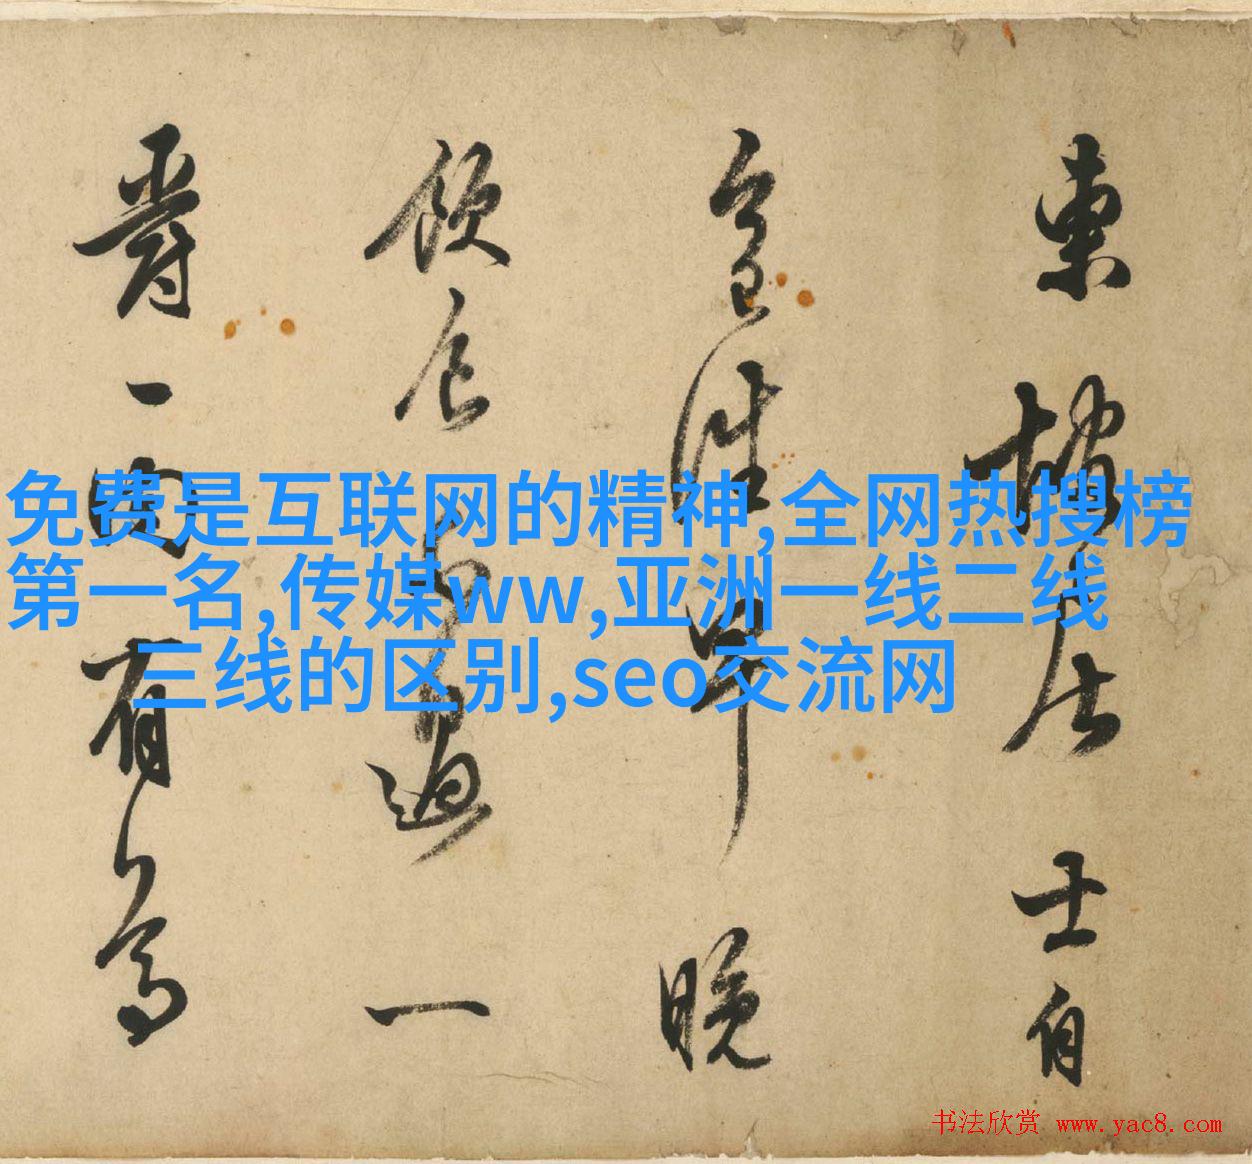 東坡居士自
今日往早晚
飲食不過一
爵一肉有
免费是互联网的精神,全网热搜榜
第一名,传媒ww,亚洲一线二线
三线的区别,seo交流网
书法欣赏 www.yac8.com